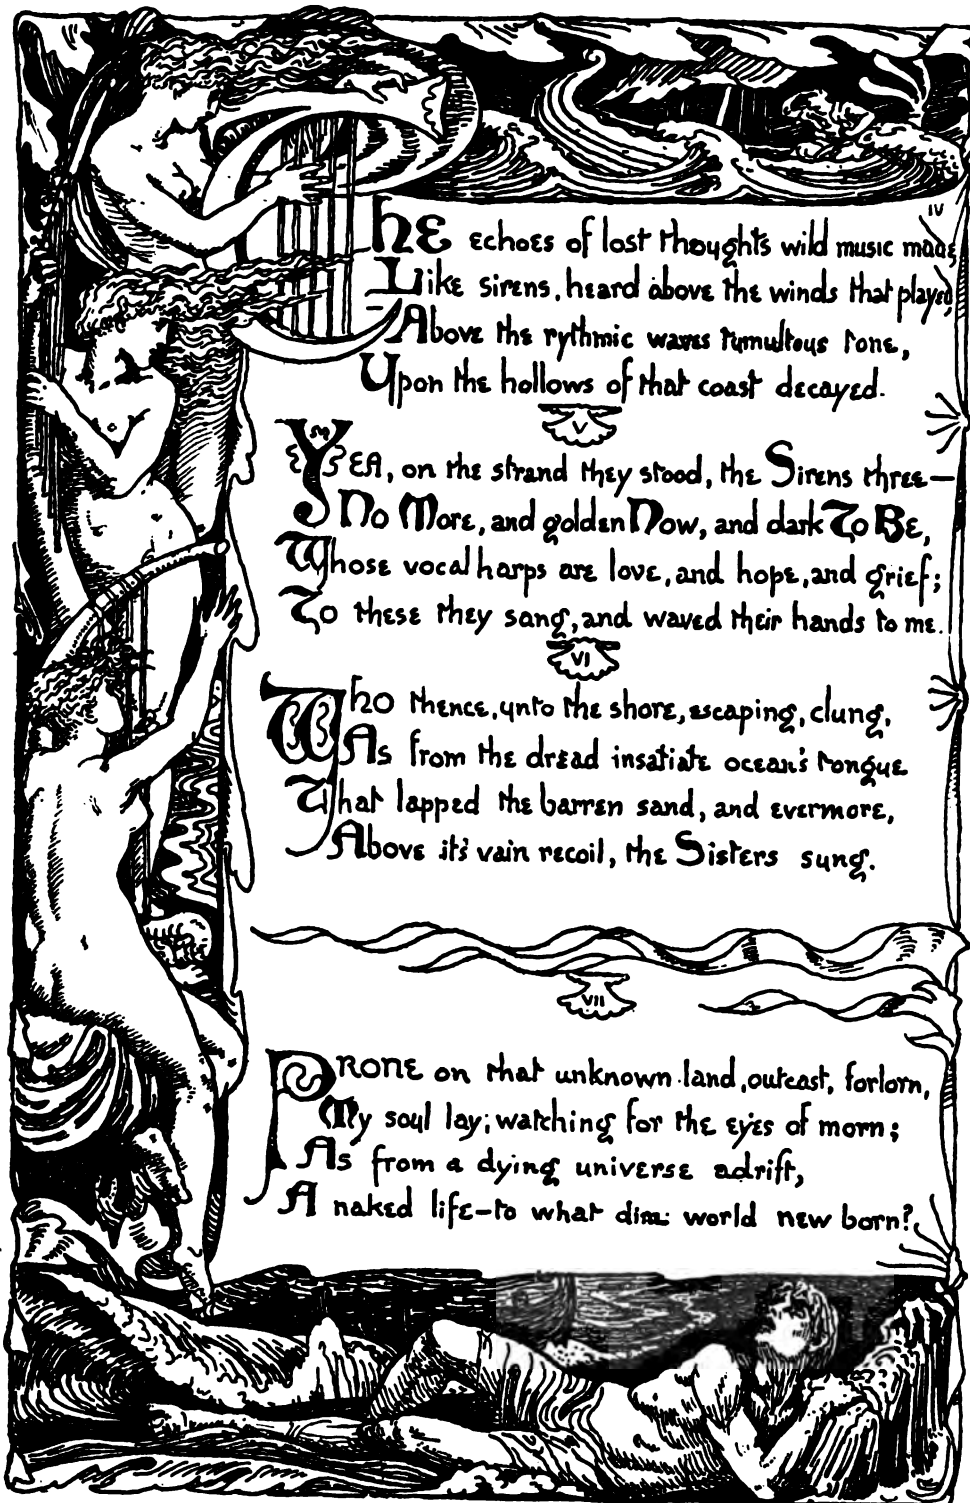 IV
The echoes of lost thoughts wild music made,
Like sirens, heard above the winds that played,
Above the rythmic waves tumultous tone,
Upon the hollows of that coast decayed.
V
Yea, on the strand they stood, the Sirens three—
No More, and golden Now, and dark To Be,
Whose vocal harps are love, and hope, and grief;
To these they sang, and waved their hands to me.
VI
Who thence, unto the shore, escaping, clung,
As from the dread insatiate ocean's tongue
That lapped the barren sand, and evermore,
Above it's vain recoil, the Sisters sung.
VII
Prone on that unknown land, outcast, forlorn,
My soul lay; watching for the eyes of morn;
As from a dying universe adrift,
A naked life—to what dim world new born?